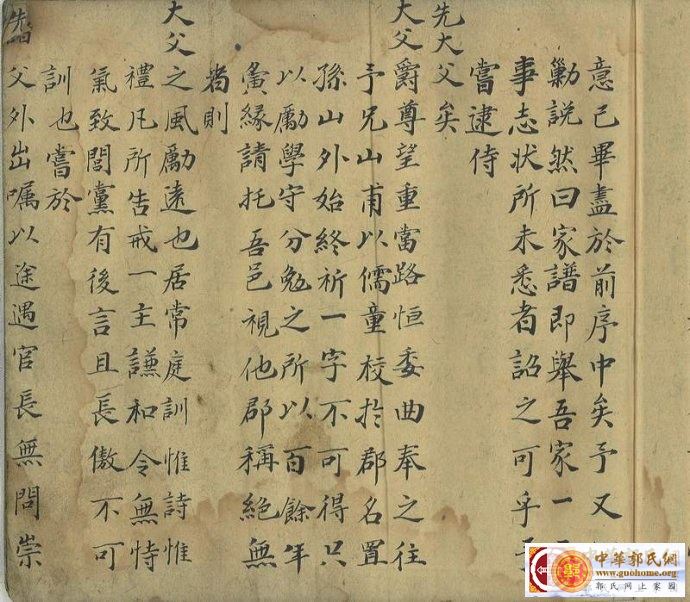 意已畢盡於前序中矣予又
勦說然曰家譜即舉吾家一
事志狀所未悉者詔之可乎
嘗逮侍
先大父矣
大父爵尊望重當路恒委曲奉之往
予兄山甫以儒童校於郡名置
孫山外始終祈一字不可得只
以勵學守分勉之所以百餘年
夤緣請托吾邑視他郡稱絕無
者則
大父之風勵遠也居常庭訓惟詩惟
禮凡所告戒一主謙和令無恃
氣致閭黨有後言且長傲不可
訓也嘗於
父外出囑以途遇官長無問崇
中華郭氏網
www.guohome.org
郭氏網上家園